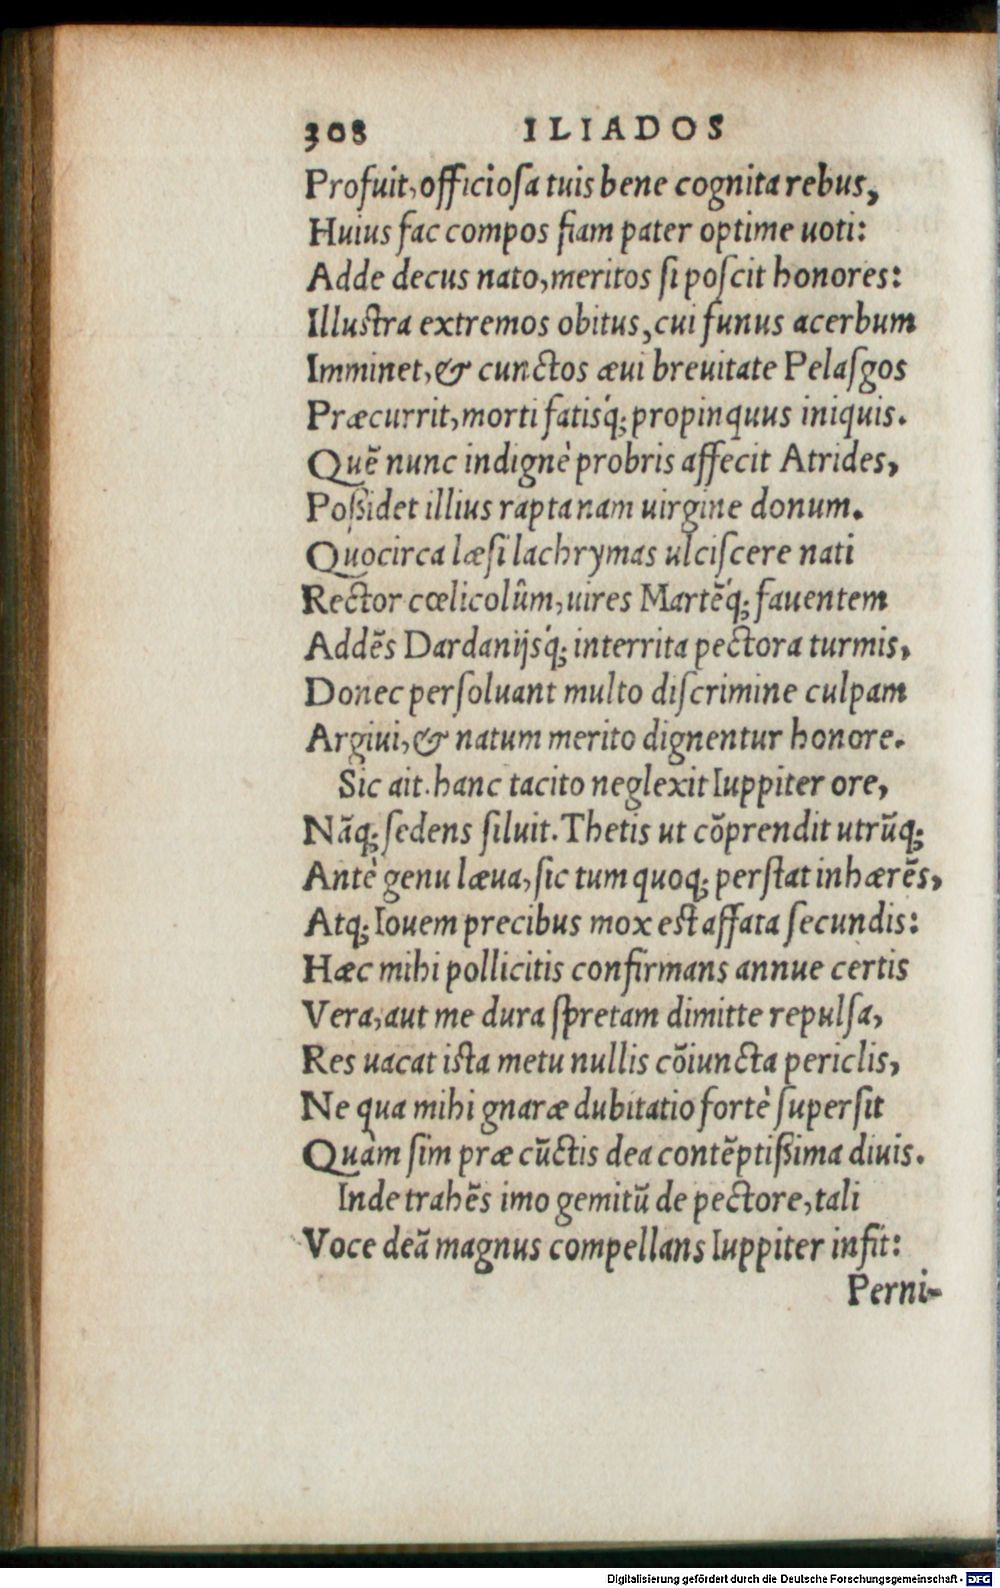 308 ILIADOS
Profuit, officiosa tuis bene cognita rebus,
Huius fac compos fiam pater optime uoti:
Adde decus nato, meritos si poscit honores:
Illustra extremos obitus, cui funus acerbum
Imminet, & cunctos æui breuitate Pelasgos
Præcurrit, morti fatisq́; propinquus iniquis.
Quẽ nunc indignè probris affecit Atrides,
Poßidet illius rapta nam uirgine donum.
Quocirca læsi lachrymas ulciscere nati
Rector cœlicolûm, uires Martẽq́; fauentem
Addẽs Dardanijsq́; interrita pectora turmis,
Donec persoluant multo discrimine culpam
Argiui, & natum merito dignentur honore.
Sic ait. hanc tacito neglexit Iuppiter ore,
Nãq; sedens siluit. Thetis ut cõprendit utrũq;
Antè genu læua, sic tum quoq; perstat inhærẽs,
Atq; Iouem precibus mox est affata secundis:
Hæc mihi pollicitis confirmans annue certis
Vera, aut me dura spretam dimitte repulsa,
Res uacat ista metu nullis cõiuncta periclis,
Ne qua mihi gnaræ dubitatio fortè supersit
Quàm sim præ cũctis dea contẽptißima diuis.
Inde trahẽs imo gemitũ de pectore, tali
Voce deã magnus compellans Iuppiter infit:
Perni-
Digitalisierung gefördert durch die Deutsche Forschungsgemeinschaft - DFG